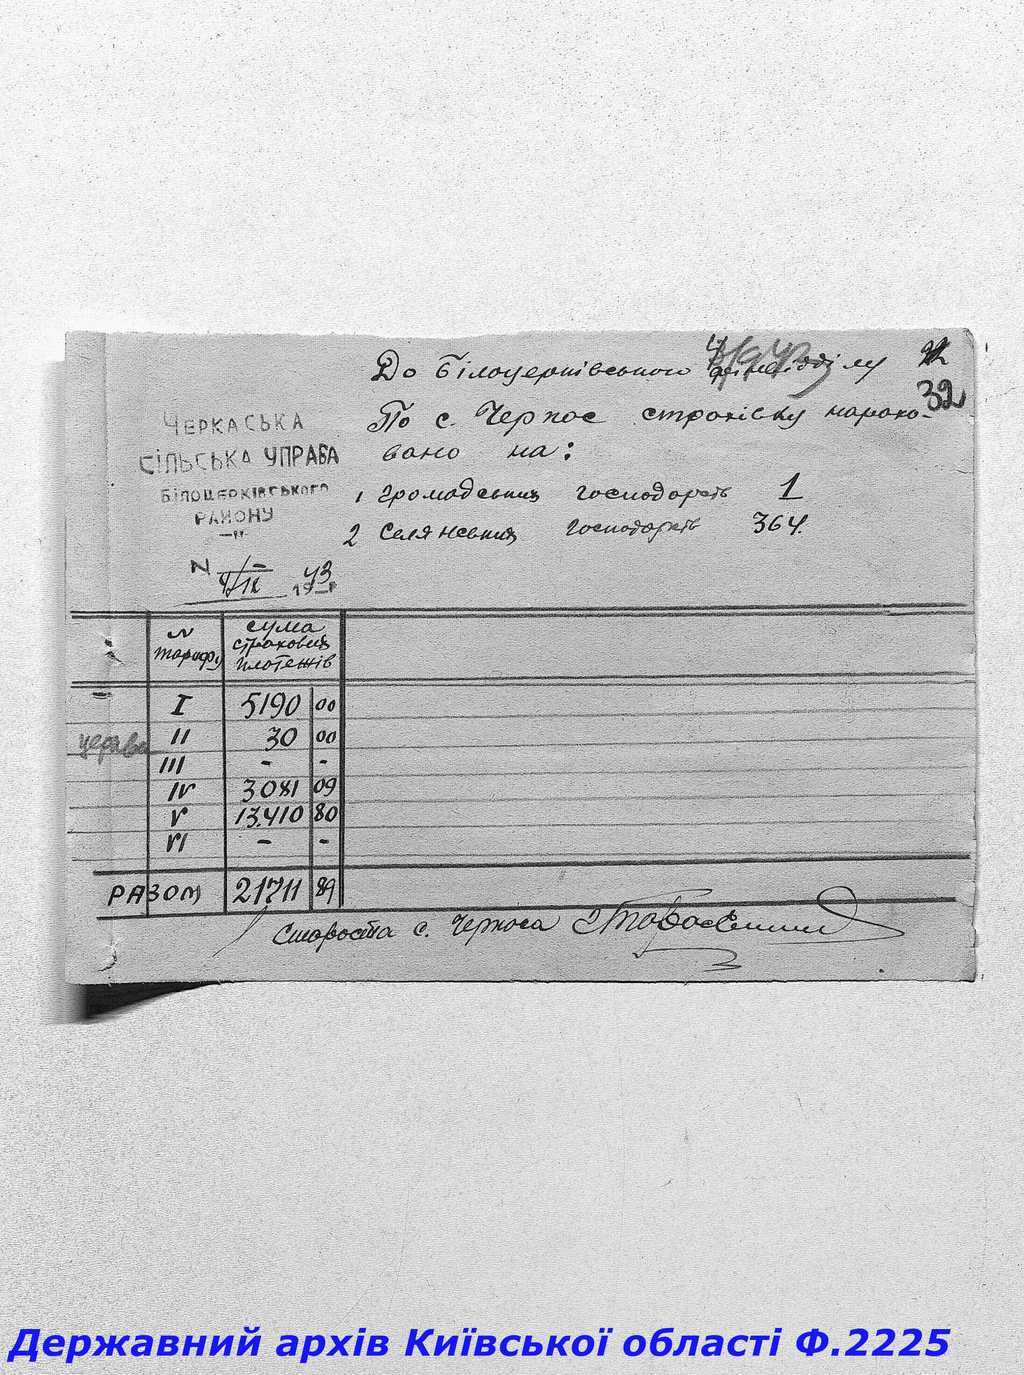 До Білоцерківського фінвідділу
32
По с. Черкас страхівку нарахо-
вано на:
1 Громадських господарств 1
2 Селянських господарств 364.
ЧЕРКАСЬКА
СІЛЬСЬКА УПРАВА
БІЛОЦЕРКІВСЬКОГО
РАЙОНУ
N
/ІІ 1943 р
№ тарифу сума страхових платежів
I 5190 00
церква II 30 00
III - -
IV 3081 09
V 13.410 80
VI - -
РАЗОМ 21711 89
Староста с. Черкаса
Державний архів Київської області Ф.2225